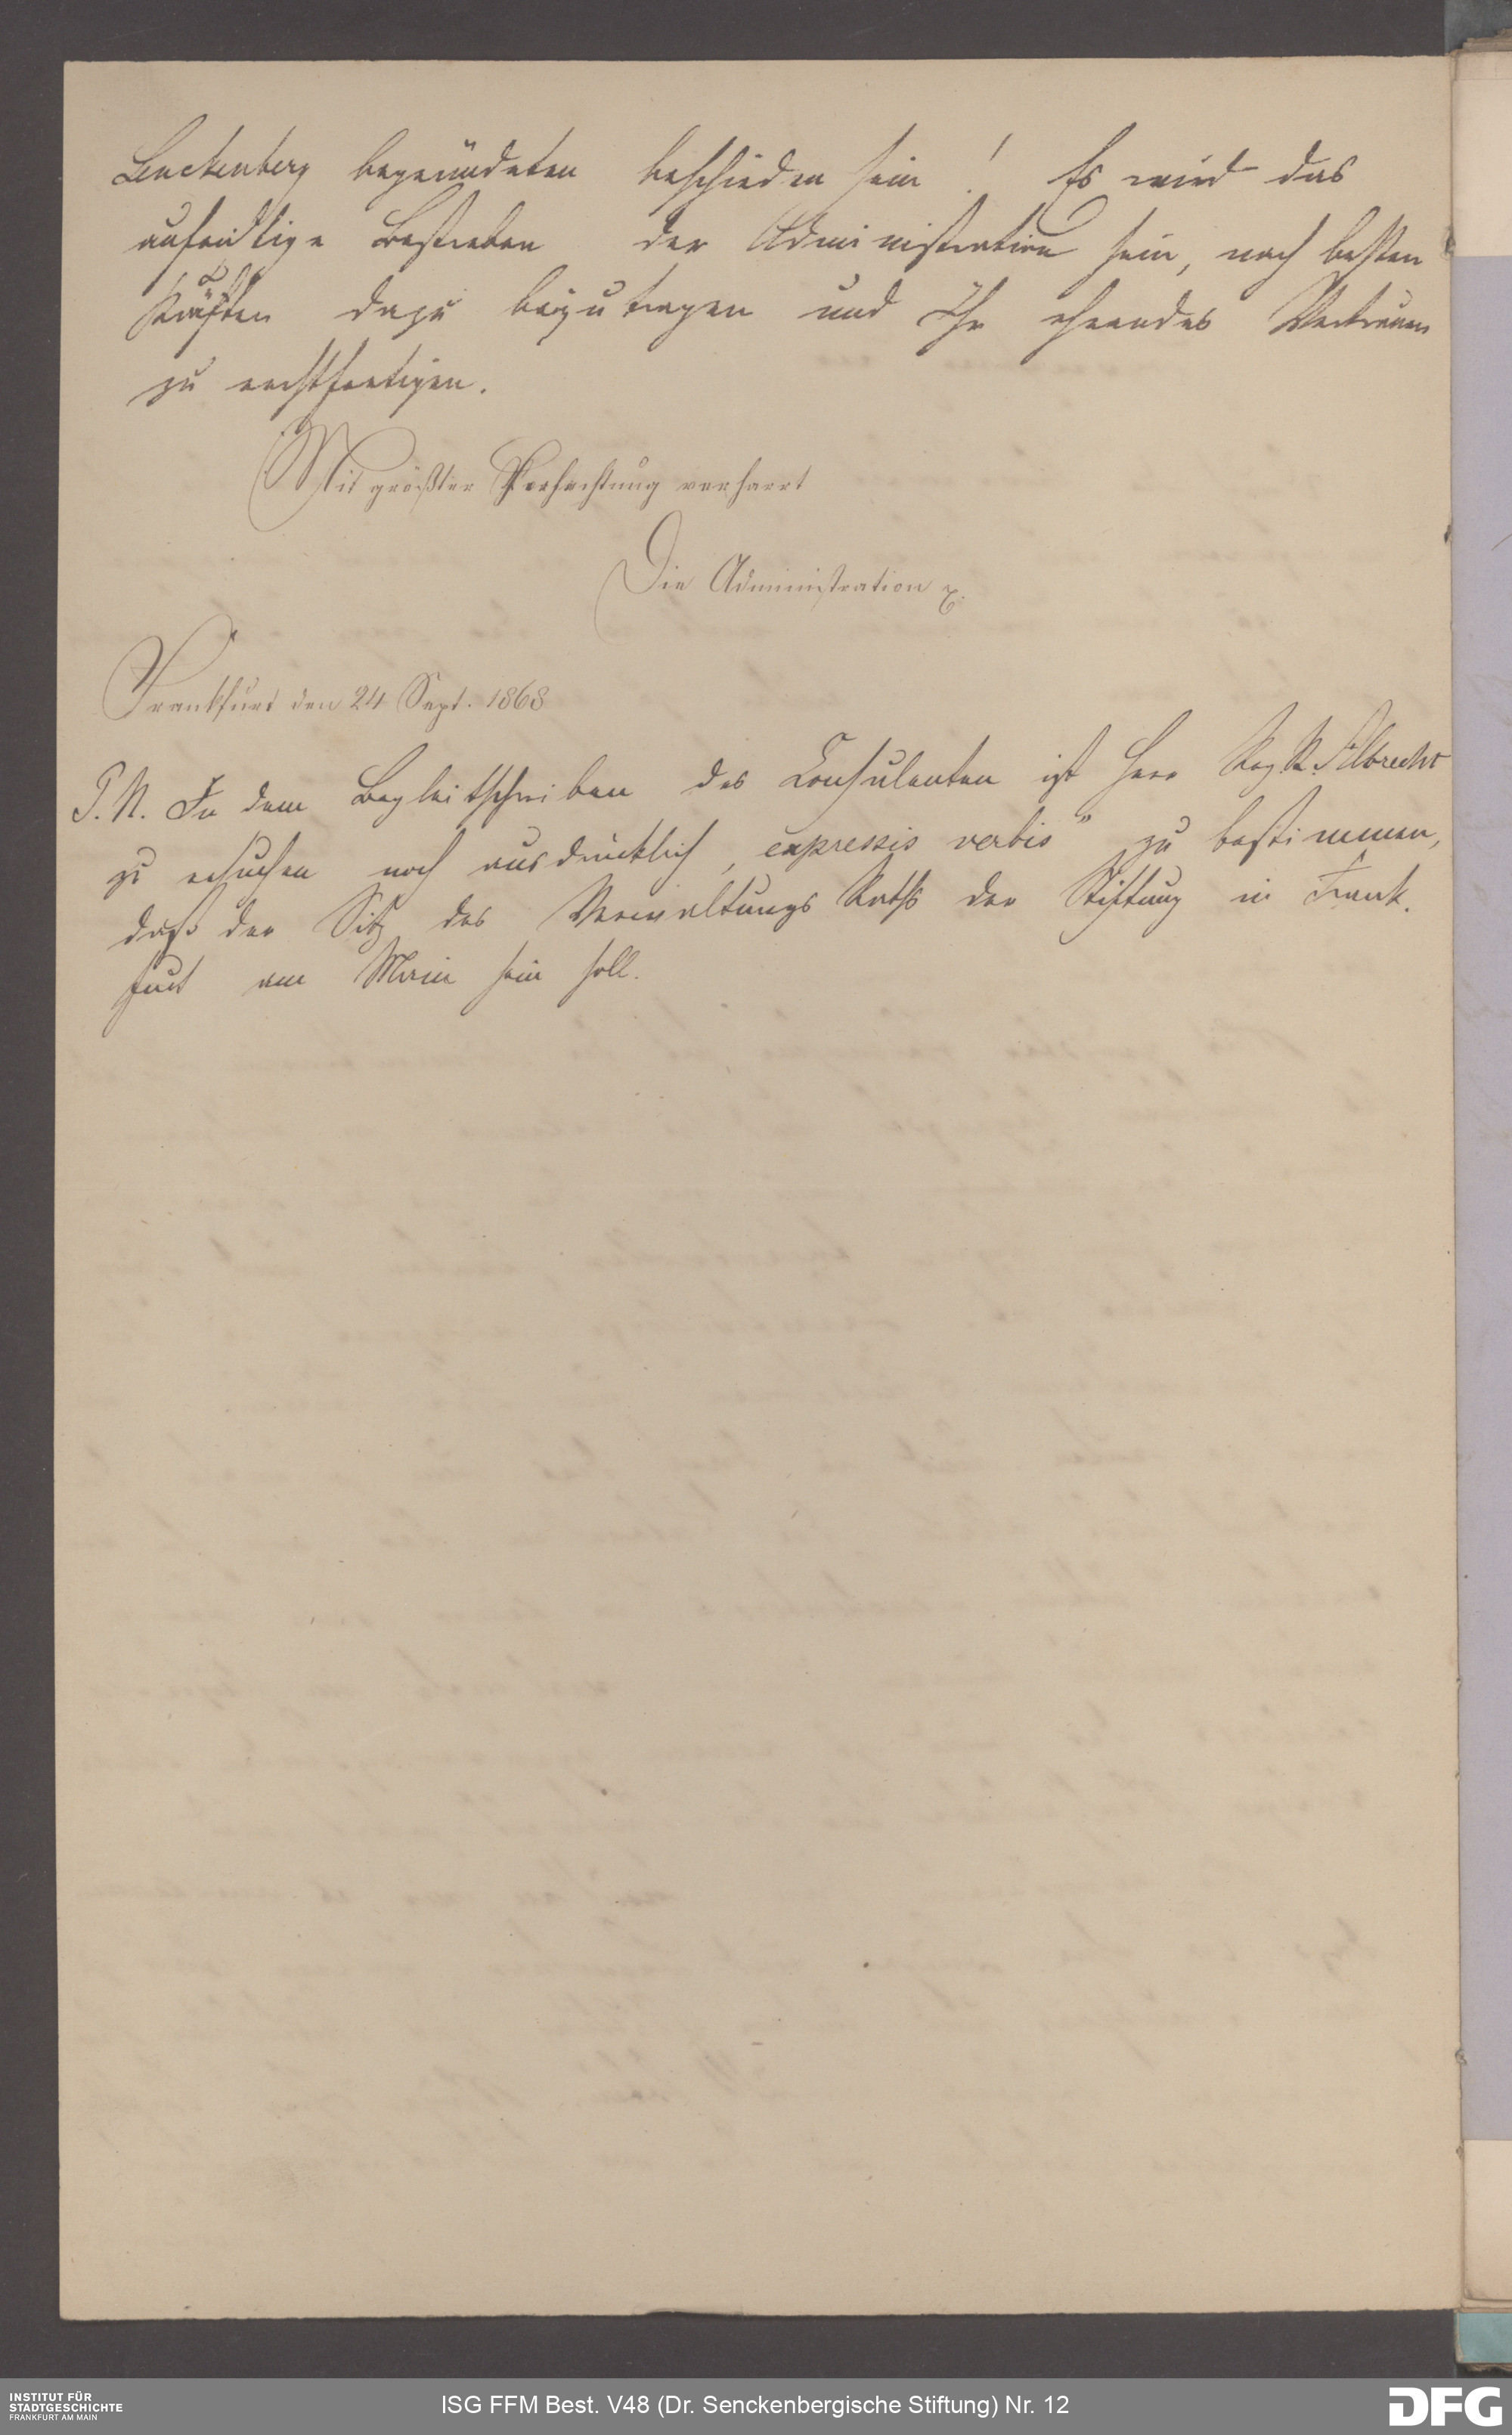 Senckenberg begründeten beschieden sein! Es wird das
aufrichtige Bestreben der Administration sein, nach besten
Kräften dazu beizutragen und Ihr ehrendes Vertrauen
zu rechtfertigen.
Mit größter Hochachtung verharrt
Die Administration
Frankfurt den 24 Sept. 1868
P. N. In dem Begleitschreiben des Consulenten ist Herr Reg. R. Albrecht
zu ersuchen noch ausdrücklich „expressis verbis" zu bestimmen,
daß der Sitz des Verwaltungs Raths der Stiftung in Frank-
furt am Main sein soll.
INSTITUT FÜR
STADTGESCHICHTE
FRANKFURT AM MAIN
ISG FFM Best. V48 (Dr. Senckenbergische Stiftung) Nr. 12
DFG